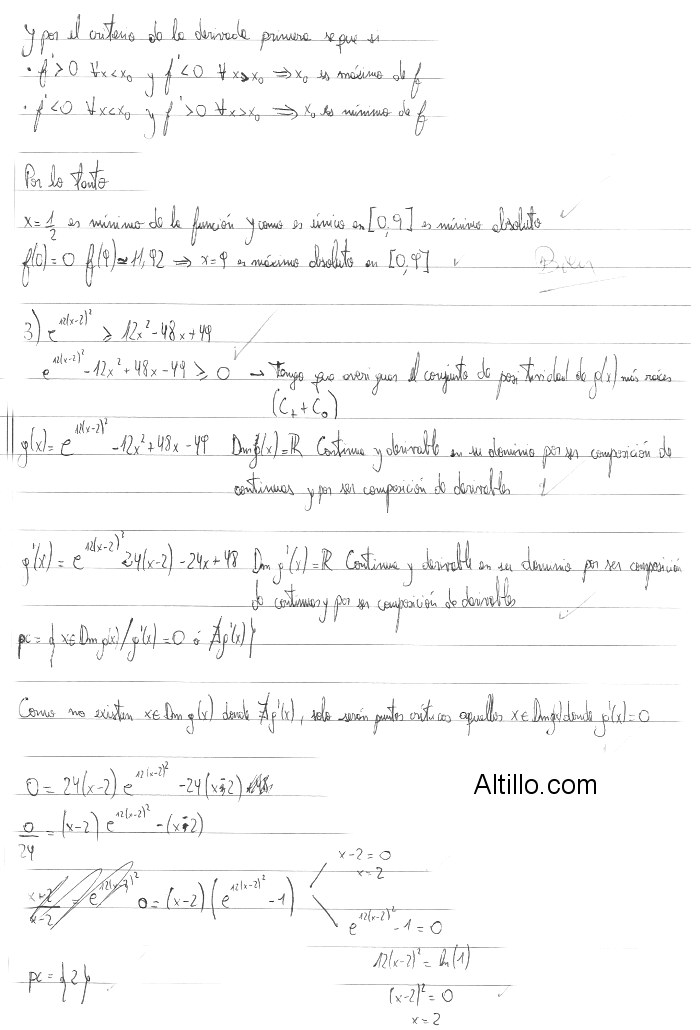 y por el criterio de la derivada primera se que si
• f'>0 ∀x<x₀ y f'<0 ∀x>x₀ ⇒ x₀ es máximo de f
• f'<0 ∀x<x₀ y f'>0 ∀x>x₀ ⇒ x₀ es mínimo de f
Por lo tanto
x=1/2 es mínimo de la función y como es único en [0,9] es mínimo absoluto
f(0)=0 f(9)≃11,92 ⇒ x=9 es máximo absoluto en [0,9]
Bien
3) e^{12(x-2)²} ⩾ 12x²-48x+49
e^{12(x-2)²} -12x²+48x-49 ⩾ 0 → Tengo que averiguar el conjunto de positividad de g(x) más raíces
(C₊+C₀)
g(x)= e^{12(x-2)²} -12x²+48x-49 Dm g(x)=ℝ Continua y derivable en su dominio por ser composición de
continuas y por ser composición de derivables
g'(x)= e^{12(x-2)²} 24(x-2) -24x+48 Dm g'(x)=ℝ Continua y derivable en su dominio por ser composición
de continuas y por ser composición de derivables
pc={x∈Dm g(x)/g'(x)=0 ó ∄g'(x)}
Como no existen x∈Dm g(x) donde ∄g'(x), solo serán puntos críticos aquellos x∈Dm g(x) donde g'(x)=0
0=24(x-2) e^{12(x-2)²} -24(x-2)
Altillo.com
0/24=(x-2) e^{12(x-2)²} -(x-2)
x-2=0
x=2
0=(x-2)(e^{12(x-2)²} -1)
e^{12(x-2)²} -1=0
12(x-2)²=ln(1)
pc={2}
(x-2)²=0
x=2